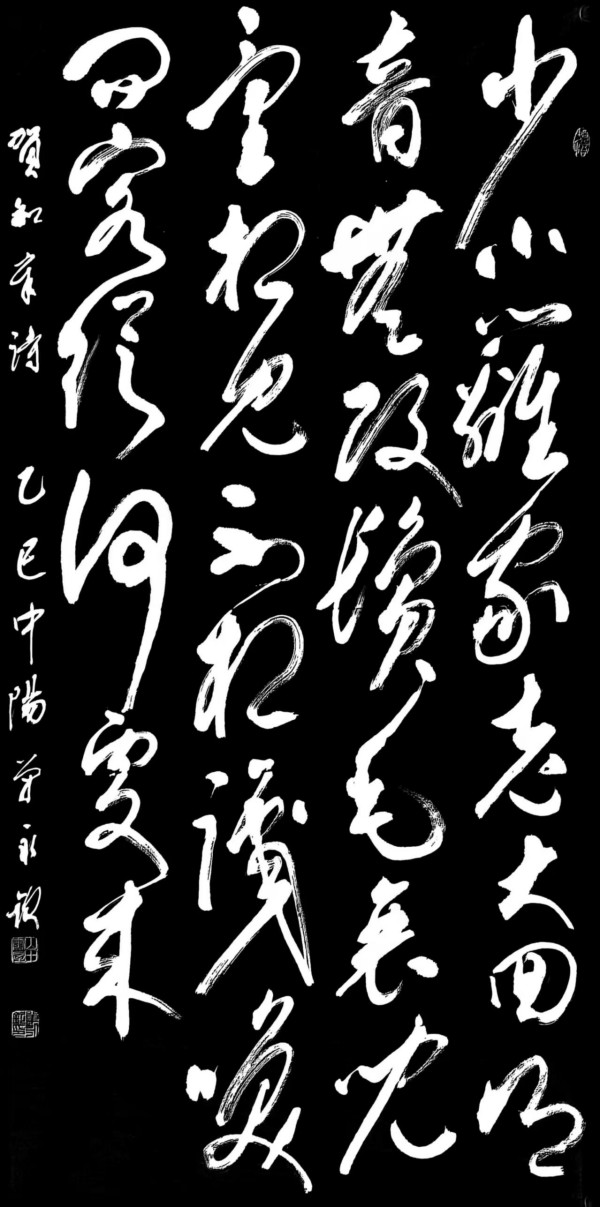 少小離家老大回鄉
音無改鬢毛衰兒
童相見不相識咲
問客從何處來
賀知章詩 乙巳中陽 永